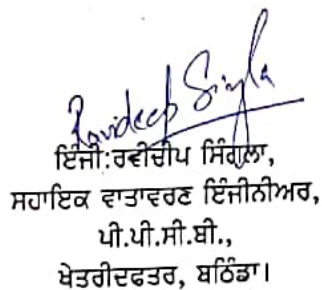 Ravideep Singla
ਇੰਜੀ:ਰਵੀਦੀਪ ਸਿੰਗਲਾ,
ਸਹਾਇਕ ਵਾਤਾਵਰਣ ਇੰਜੀਨੀਅਰ,
ਪੀ.ਪੀ.ਸੀ.ਬੀ.,
ਖੇਤਰੀਦਫਤਰ, ਬਠਿੰਡਾ।